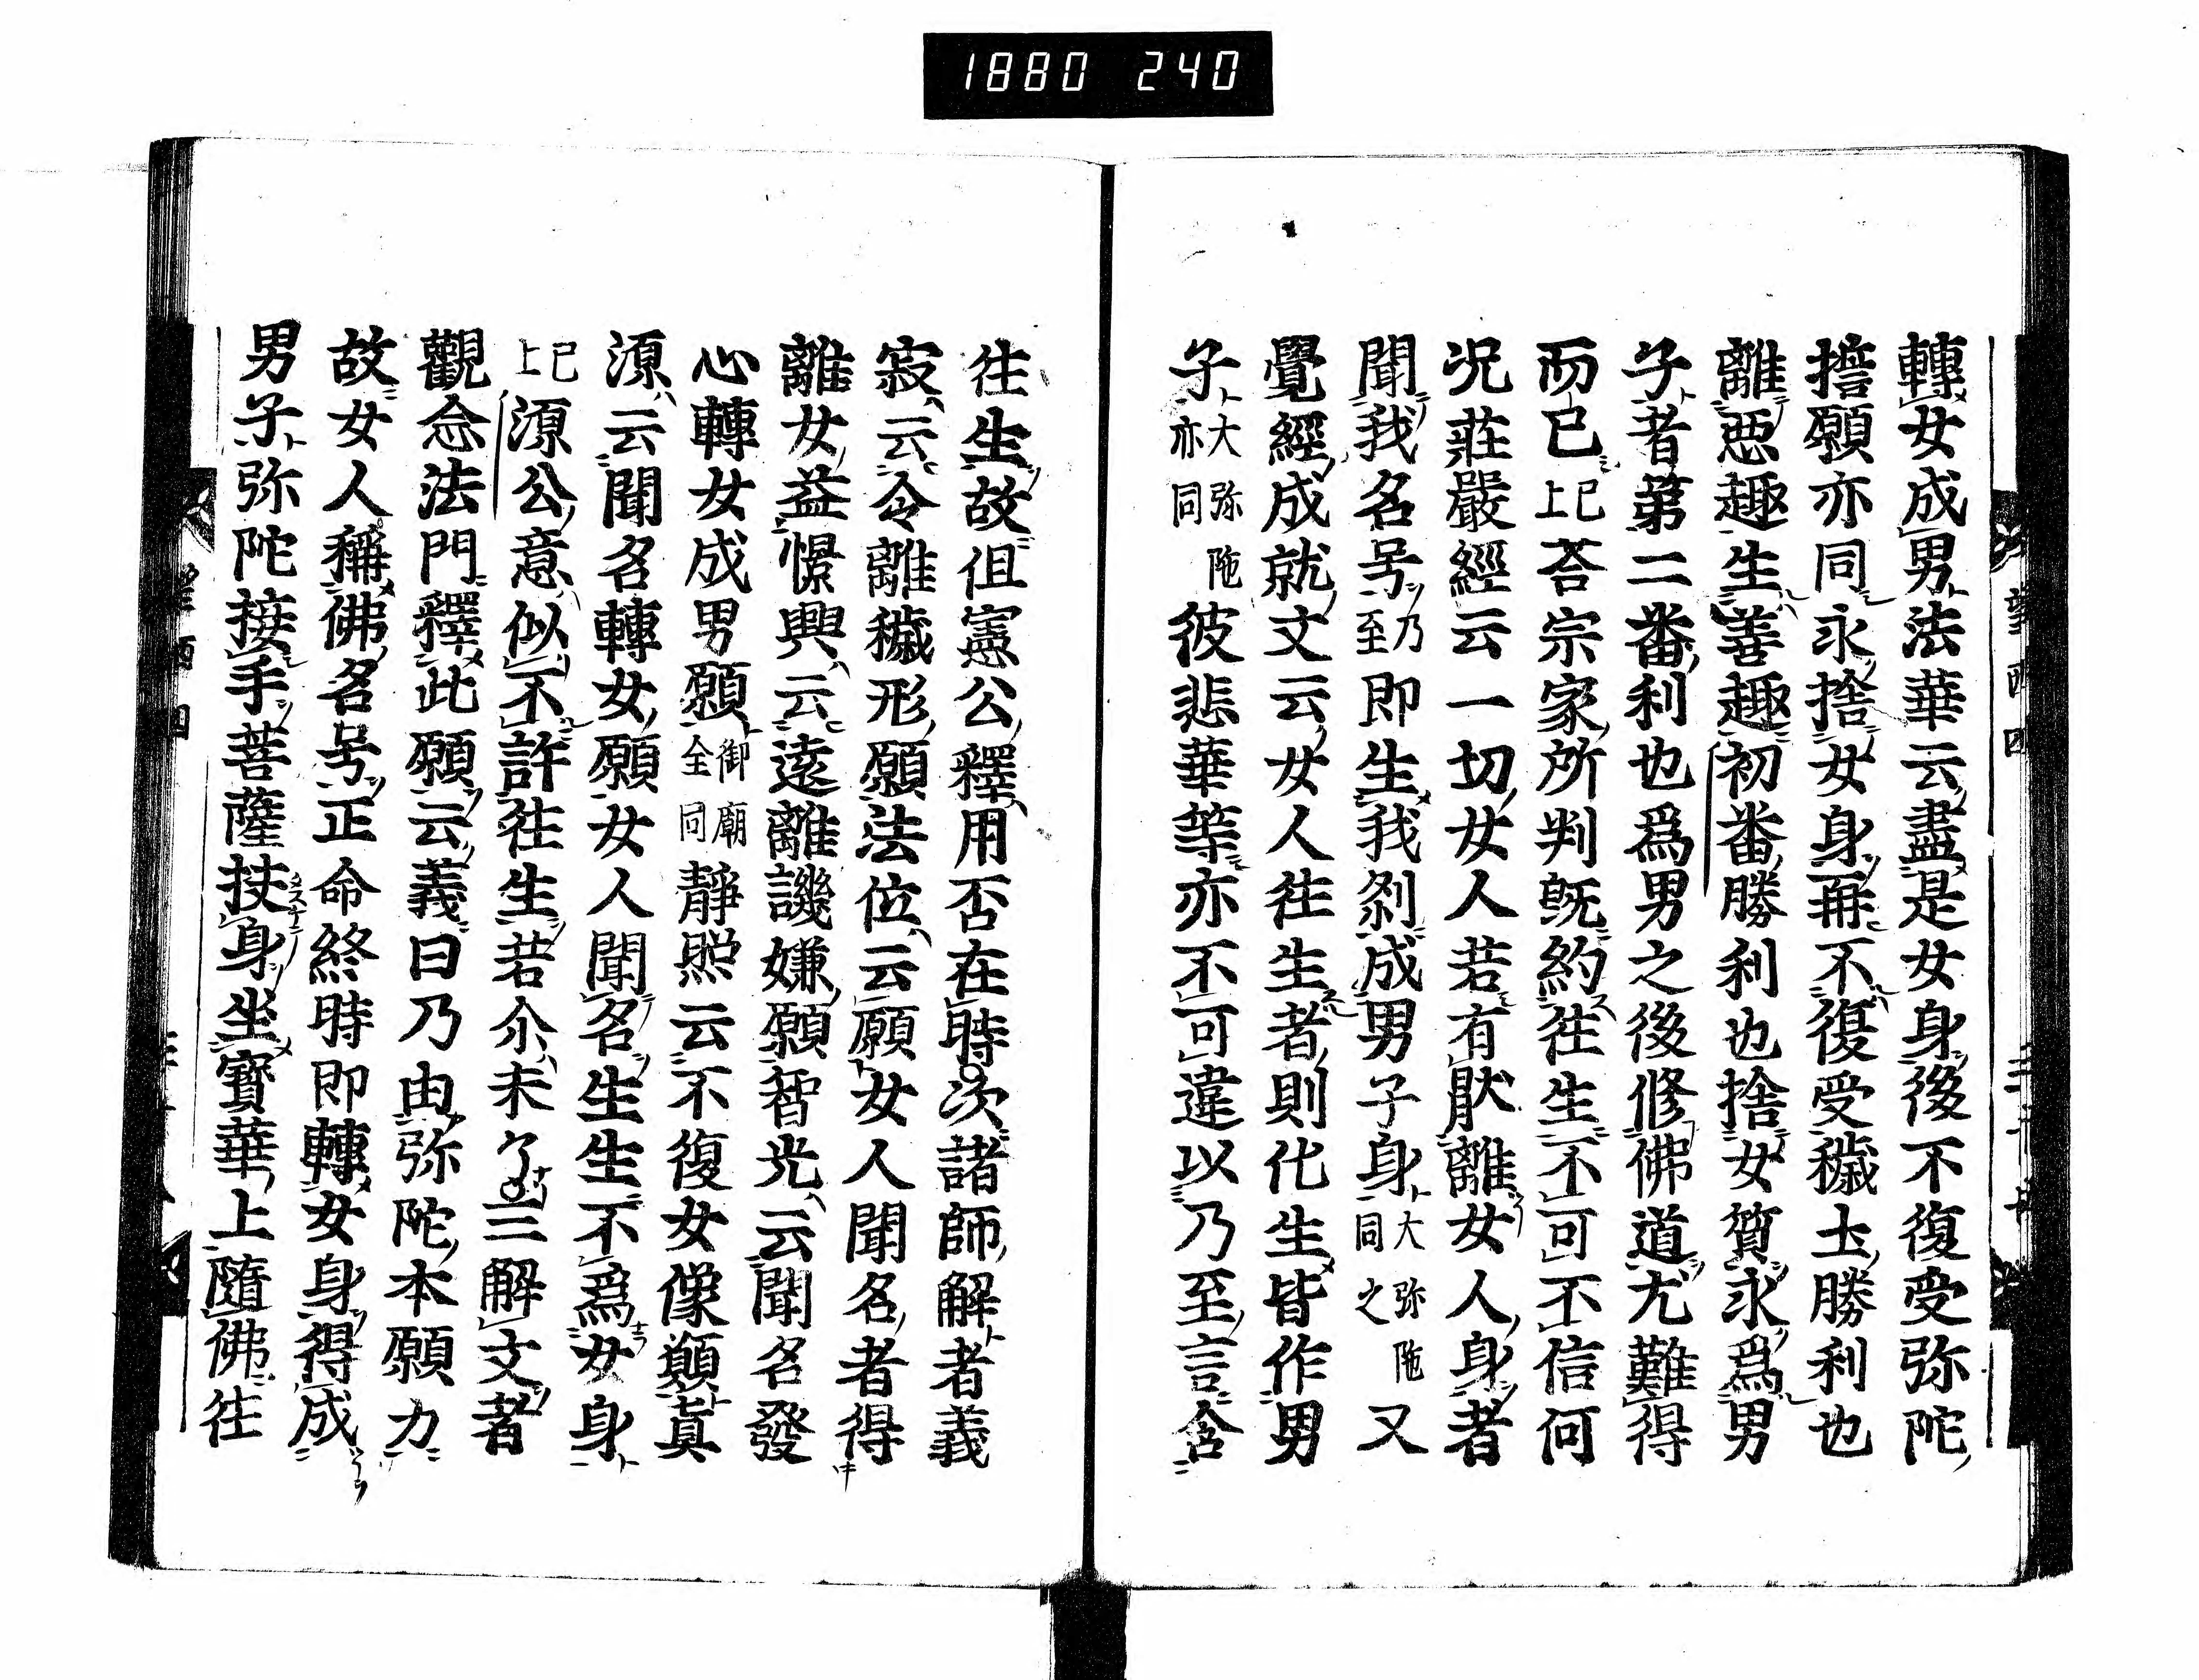 1880 240
轉女成男法華云盡是女身後不復受弥陀
擔願亦同永捨女身再不復受穢土勝利也
離惡趣生善趣初番勝利也捨女質永爲男
子者第二番利也爲男之後修佛道尤難得
而已已上荅宗家所判既約徃生不可不信何
况莊嚴經云一切女人若有猒離女人身者
聞我名号乃至即生我刹成男子身大弥陀同之又
覺經成就文云女人徃生者則化生皆作男
子大弥陀亦同彼悲華等亦不可違以乃至言含
徃生故但憲公釋用否在時次諸師解者義
寂云令離穢形願法位云願女人聞名者得
離女益憬興云遠離譏嫌願智光云聞名發
心轉女成男願御廟全同靜照云不復女像願真
源云聞名轉女願女人聞名生生不爲女身
已上源公意似不許徃生若尒未了三解文者
觀念法門釋此願云義曰乃由弥陀本願力
故女人稱佛名号正命終時即轉女身得成
男子弥陀接手菩薩扶身坐寳華上隨佛徃